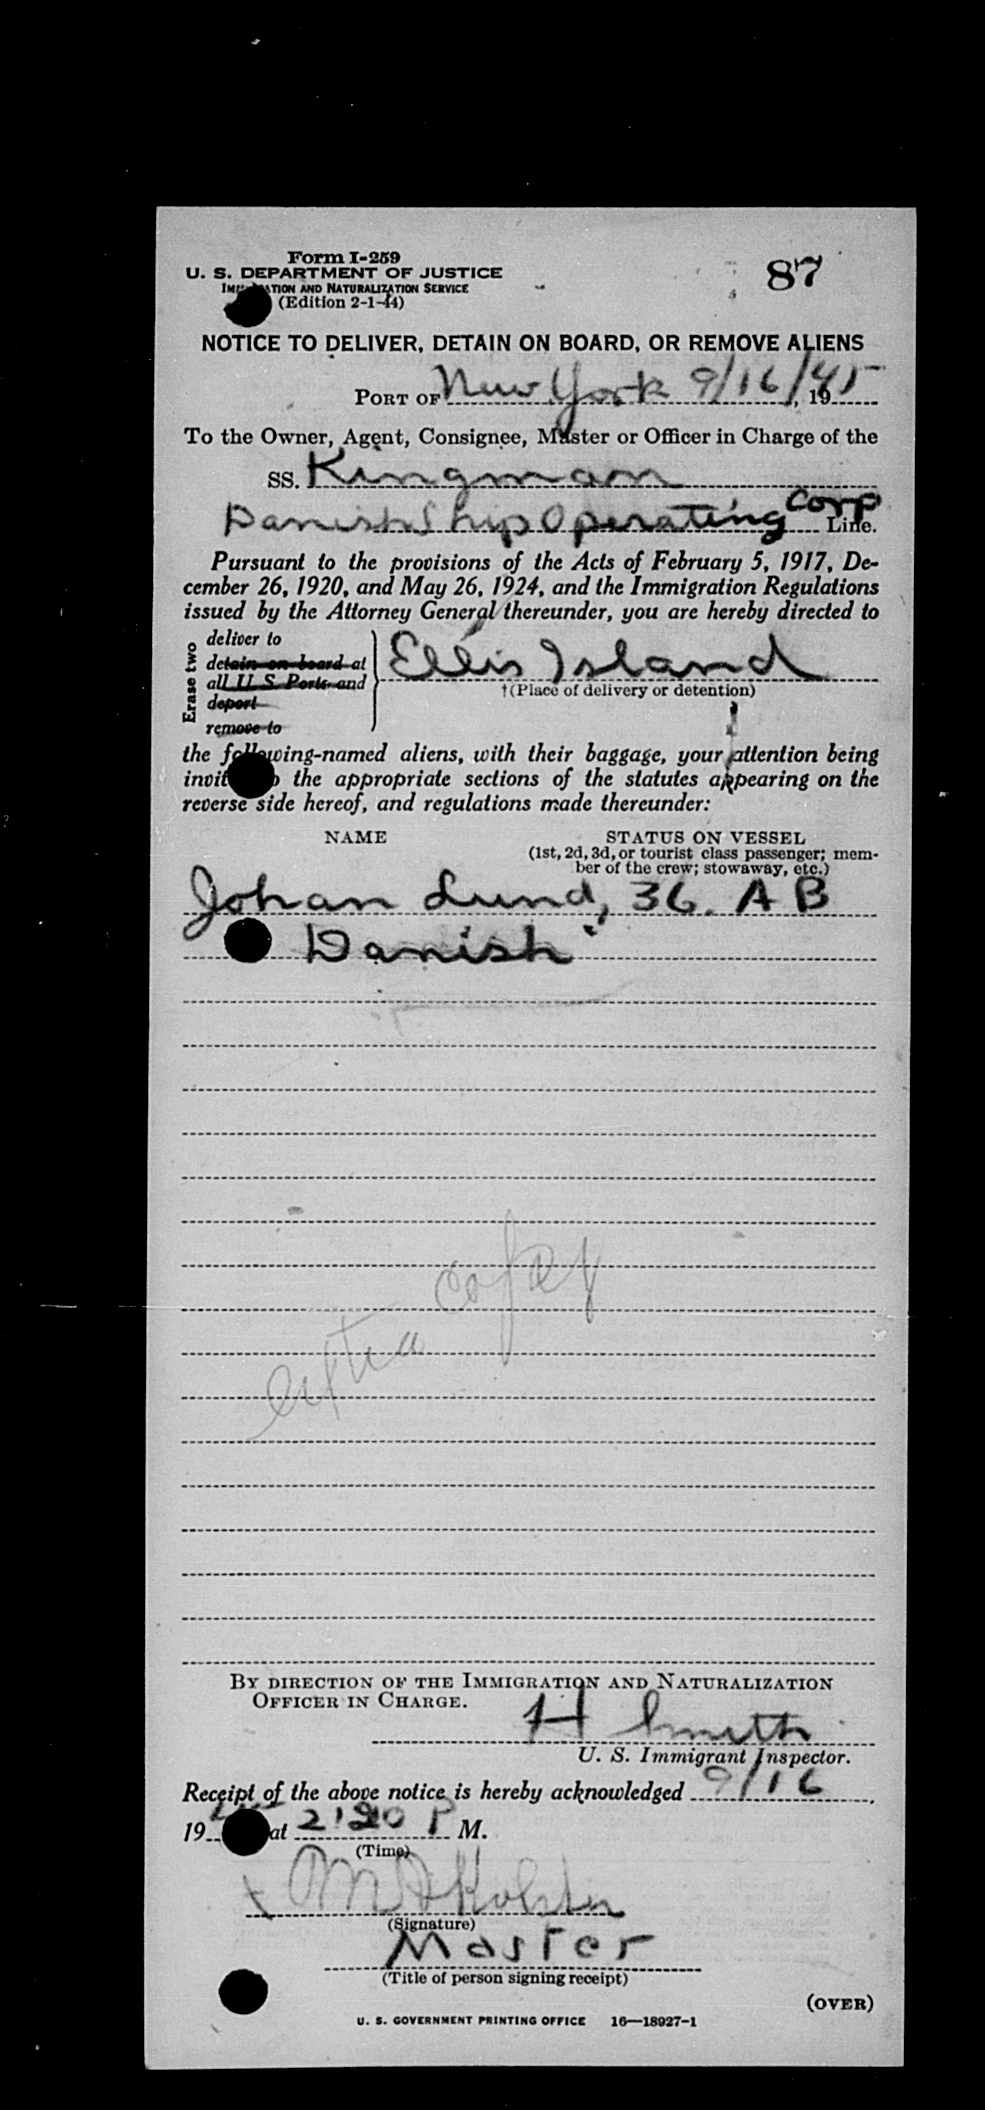 Form I-259
U. S. DEPARTMENT OF JUSTICE
IMMIGRATION AND NATURALIZATION SERVICE
(Edition 2-1-44)
87
NOTICE TO DELIVER, DETAIN ON BOARD, OR REMOVE ALIENS
PORT OF New York 9/16/45, 19
To the Owner, Agent, Consignee, Master or Officer in Charge of the
SS. Kingman
Danish Ship Operating Corp Line.
Pursuant to the provisions of the Acts of February 5, 1917, De-
cember 26, 1920, and May 26, 1924, and the Immigration Regulations
issued by the Attorney General thereunder, you are hereby directed to
Erase two
deliver to
detain on board at
all U. S. Ports and
deport
remove to
Ellis Island
†(Place of delivery or detention)
the following-named aliens, with their baggage, your attention being
invited to the appropriate sections of the statutes appearing on the
reverse side hereof, and regulations made thereunder:
NAME STATUS ON VESSEL
(1st, 2d, 3d, or tourist class passenger; mem-
ber of the crew; stowaway, etc.)
Johan Lund, 36. A B
Danish
extra copy
BY DIRECTION OF THE IMMIGRATION AND NATURALIZATION
OFFICER IN CHARGE.
H Smith
U. S. Immigrant Inspector.
Receipt of the above notice is hereby acknowledged 9/16,
19 at 2:20 P M.
(Time)
(Signature)
Master
(Title of person signing receipt)
(OVER)
U. S. GOVERNMENT PRINTING OFFICE 16—18927-1